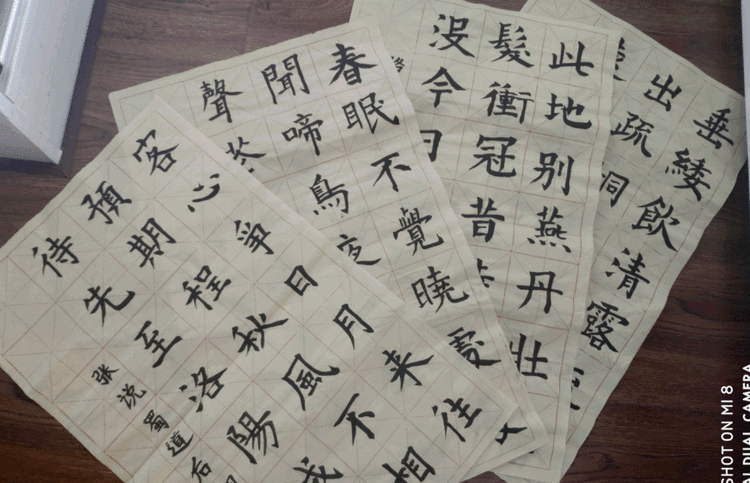 垂緌飲清露
出疏
此地別燕丹壯
髮衝冠昔
沒今日
春眠不覺曉處
聞啼鳥夜
聲
客心爭日月來往
預期程秋風不相
待先至洛陽
张说蜀道后
SHOT ON MI 8
AI DUAL CAMERA